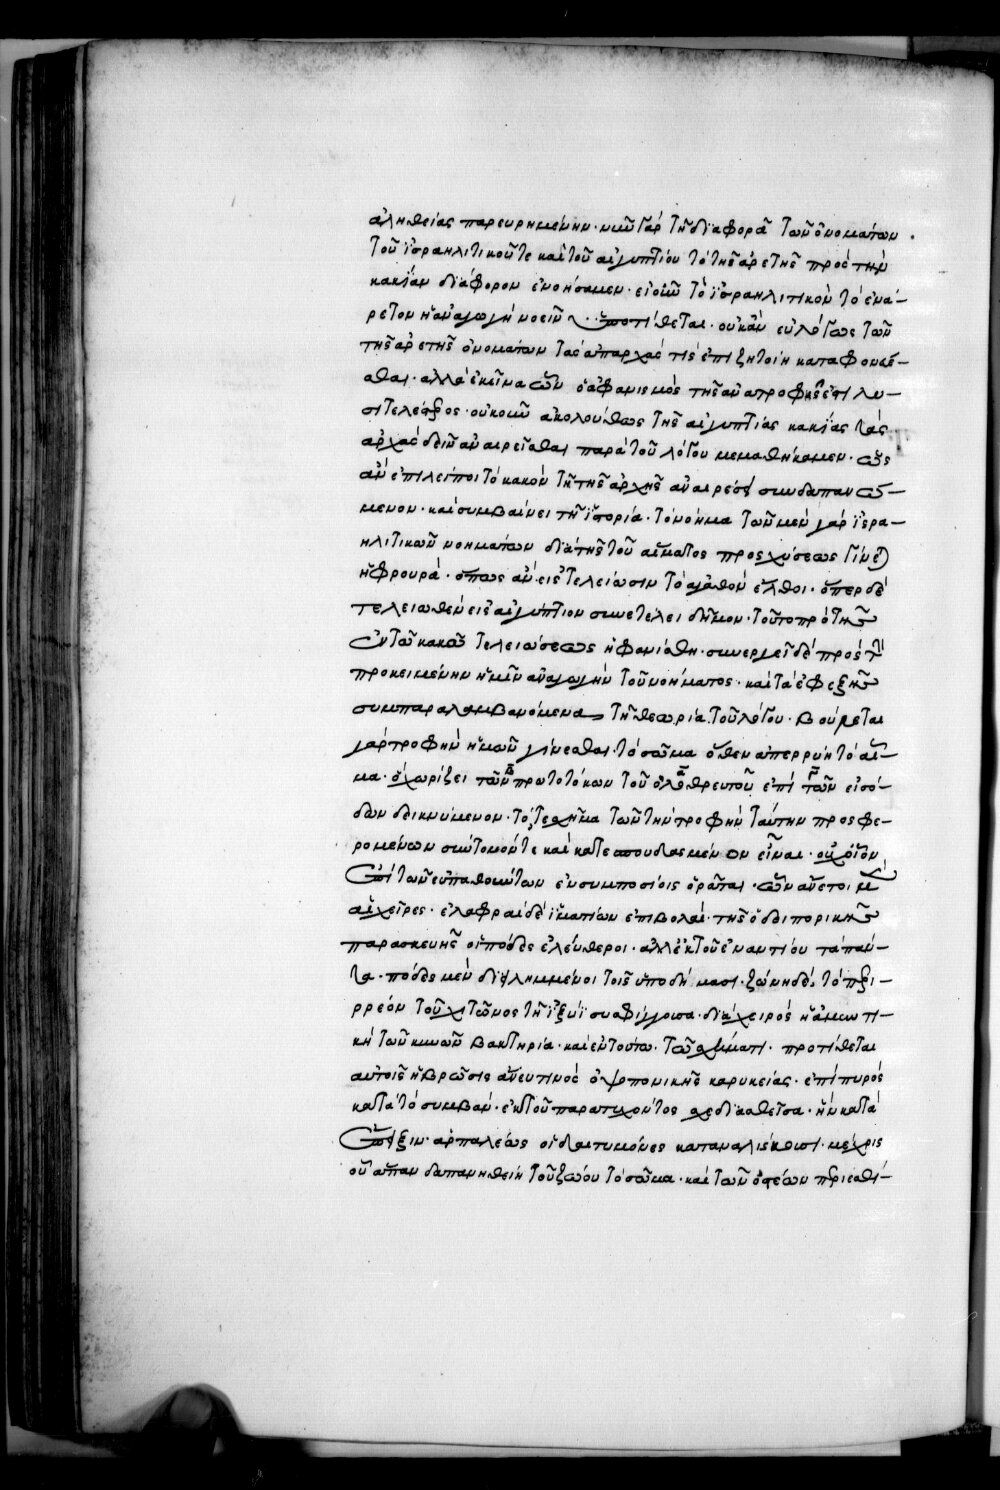 ἀληθείας παρευρημένην· νυνὶ γὰρ τῇ διαφορᾷ τῶν ὀνομάτων
τοῦ ἰσραηλιτικοῦ τε καὶ τοῦ αἰγυπτίου τὸ τῆς ἀρετῆς πρὸς τὴν
κακίαν διάφορον ἐνοήσαμεν· εἰ οὖν τὸ ἰσραηλιτικὸν τὸ ἐνά-
ρετον ἡ ἀναγωγὴ νοεῖν ὑποτίθεται· οὐκ ἂν εὐλόγως τῶν
τῆς ἀρετῆς ὀνομάτων τὰς ἀπαρχάς τις ἐπιζητοίη καταφονεύ-
εσθαι· ἀλλὰ ἐκεῖνα ὧν ὁ ἀφανισμὸς τῆς ἀνατροφῆς ἐστι λυ-
σιτελέστερος· οὐκοῦν ἀκολούθως τῆς αἰγυπτίας κακίας τὰς
ἀρχὰς δεῖν ἀναιρεῖσθαι παρὰ τοῦ λόγου μεμαθήκαμεν· ὡς
ἂν ἐπιλείποι τὸ κακὸν τῇ τῆς ἀρχῆς ἀναιρέσει συνδαπανώ-
μενον· καὶ συμβαίνει τῇ ἱστορίᾳ· τὸ νόημα τῶν μὲν γὰρ ἰσρα-
ηλιτικῶν νοημάτων διὰ τῆς τοῦ αἵματος προσχύσεως γίνεται
ἡ φρουρά· ὅπως ἂν εἰς τελείωσιν τὸ ἀγαθὸν ἔλθοι· ὅπερ δὲ
τελειωθὲν εἰς αἰγύπτιον συνετέλει δῆμον· τοῦτο πρὸ τῆς
ἐν τῷ κακῷ τελειώσεως ἠφανίσθη· συνεργεῖ δὲ πρὸς τὴν
προκειμένην ἡμῖν ἀναγωγὴν τοῦ νοήματος· καὶ τὰ ἐφεξῆς
συμπαραλαμβανόμενα τῇ θεωρίᾳ τοῦ λόγου· βούλεται
γὰρ τροφὴν ἡμῶν γίνεσθαι· τὸ σῶμα ὅθεν ἀπερρύη τὸ αἷ-
μα· ὃ χωρίζει τῶν πρωτοτόκων τοῦ ὀλοθρευτοῦ ἐπὶ τῶν εἰσό-
δων δεικνύμενον· τό, τε σχῆμα τῶν τὴν τροφὴν ταύτην προσφε-
ρομένων σύντομόν τε καὶ κατεσπουδασμένον εἶναι· οὐχ οἷον
ἐπὶ τῶν εὐπαθούντων ἐν συμποσίοις ὁρᾶται· ὧν ἄνετοι μὲν
αἱ χεῖρες· ἐλαφραὶ δὲ ἱματίων ἐπιβολαί· τῆς ὁδοιπορικῆς
παρασκευῆς οἱ πόδες ἐλεύθεροι· ἀλλ' ἐκ τοῦ ἐναντίου τὰ πάν-
τα· πόδες μὲν διειλημμένοι τοῖς ὑποδήμασι· ζώνη δὲ, τὸ περι-
ρρέον τοῦ χιτῶνος τῇ ἰξύϊ συσφίγγουσα· διὰ χειρὸς ἡ ἀμυντι-
κὴ τῶν κυνῶν βακτηρία· καὶ ἐν τούτῳ τῷ σχήματι· προτίθεται
αὐτοῖς ἡ βρῶσις ἄνευ τινὸς ὀψοπονικῆς καρυκείας· ἐπὶ πυρὸς
κατὰ τὸ συμβάν· ἐκ τοῦ παρατυχόντος σχεδιασθεῖσα· ἣν κατὰ
ἔπειξιν· ἁρπαλέως οἱ δαιτυμόνες καταναλίσκουσι· μέχρις
οὗ ἅπαν δαπανηθείη τοῦ ζώου τὸ σῶμα· καὶ τῶν ὀστέων περιεσθί-